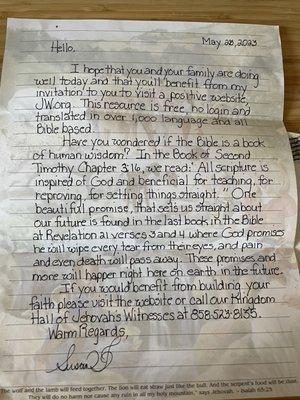 May 28, 2023
Hello,
I hope that you and your family are doing
well today and that you'll benefit from my
invitation to you to visit a positive website,
JW.org. This resource is free, no login and
translated in over 1,000 language and all
Bible based.
Have you wondered if the Bible is a book
of human wisdom? In the Book of Second
Timothy, Chapter 3:16, we read: "All scripture is
inspired of God and beneficial for teaching, for
reproving, for setting things straight." One
beautiful promise, that sets us straight about
our future is found in the last book in the Bible
at Revelation 21 verses 3 and 4 where God promises
he will wipe every tear from their eyes, and pain
and even death will pass away. These promises and
more will happen right here on earth in the future.
If you would benefit from building your
faith please visit the website or call our Kingdom
Hall of Jehovah's Witnesses at 858-523-8135.
Warm Regards,
Susan
The wolf and the lamb will feed together, The lion will eat straw just like the bull, And the serpent's food will be dust.
They will do no harm nor cause any ruin in all my holy mountain," says Jehovah. - Isaiah 65:25